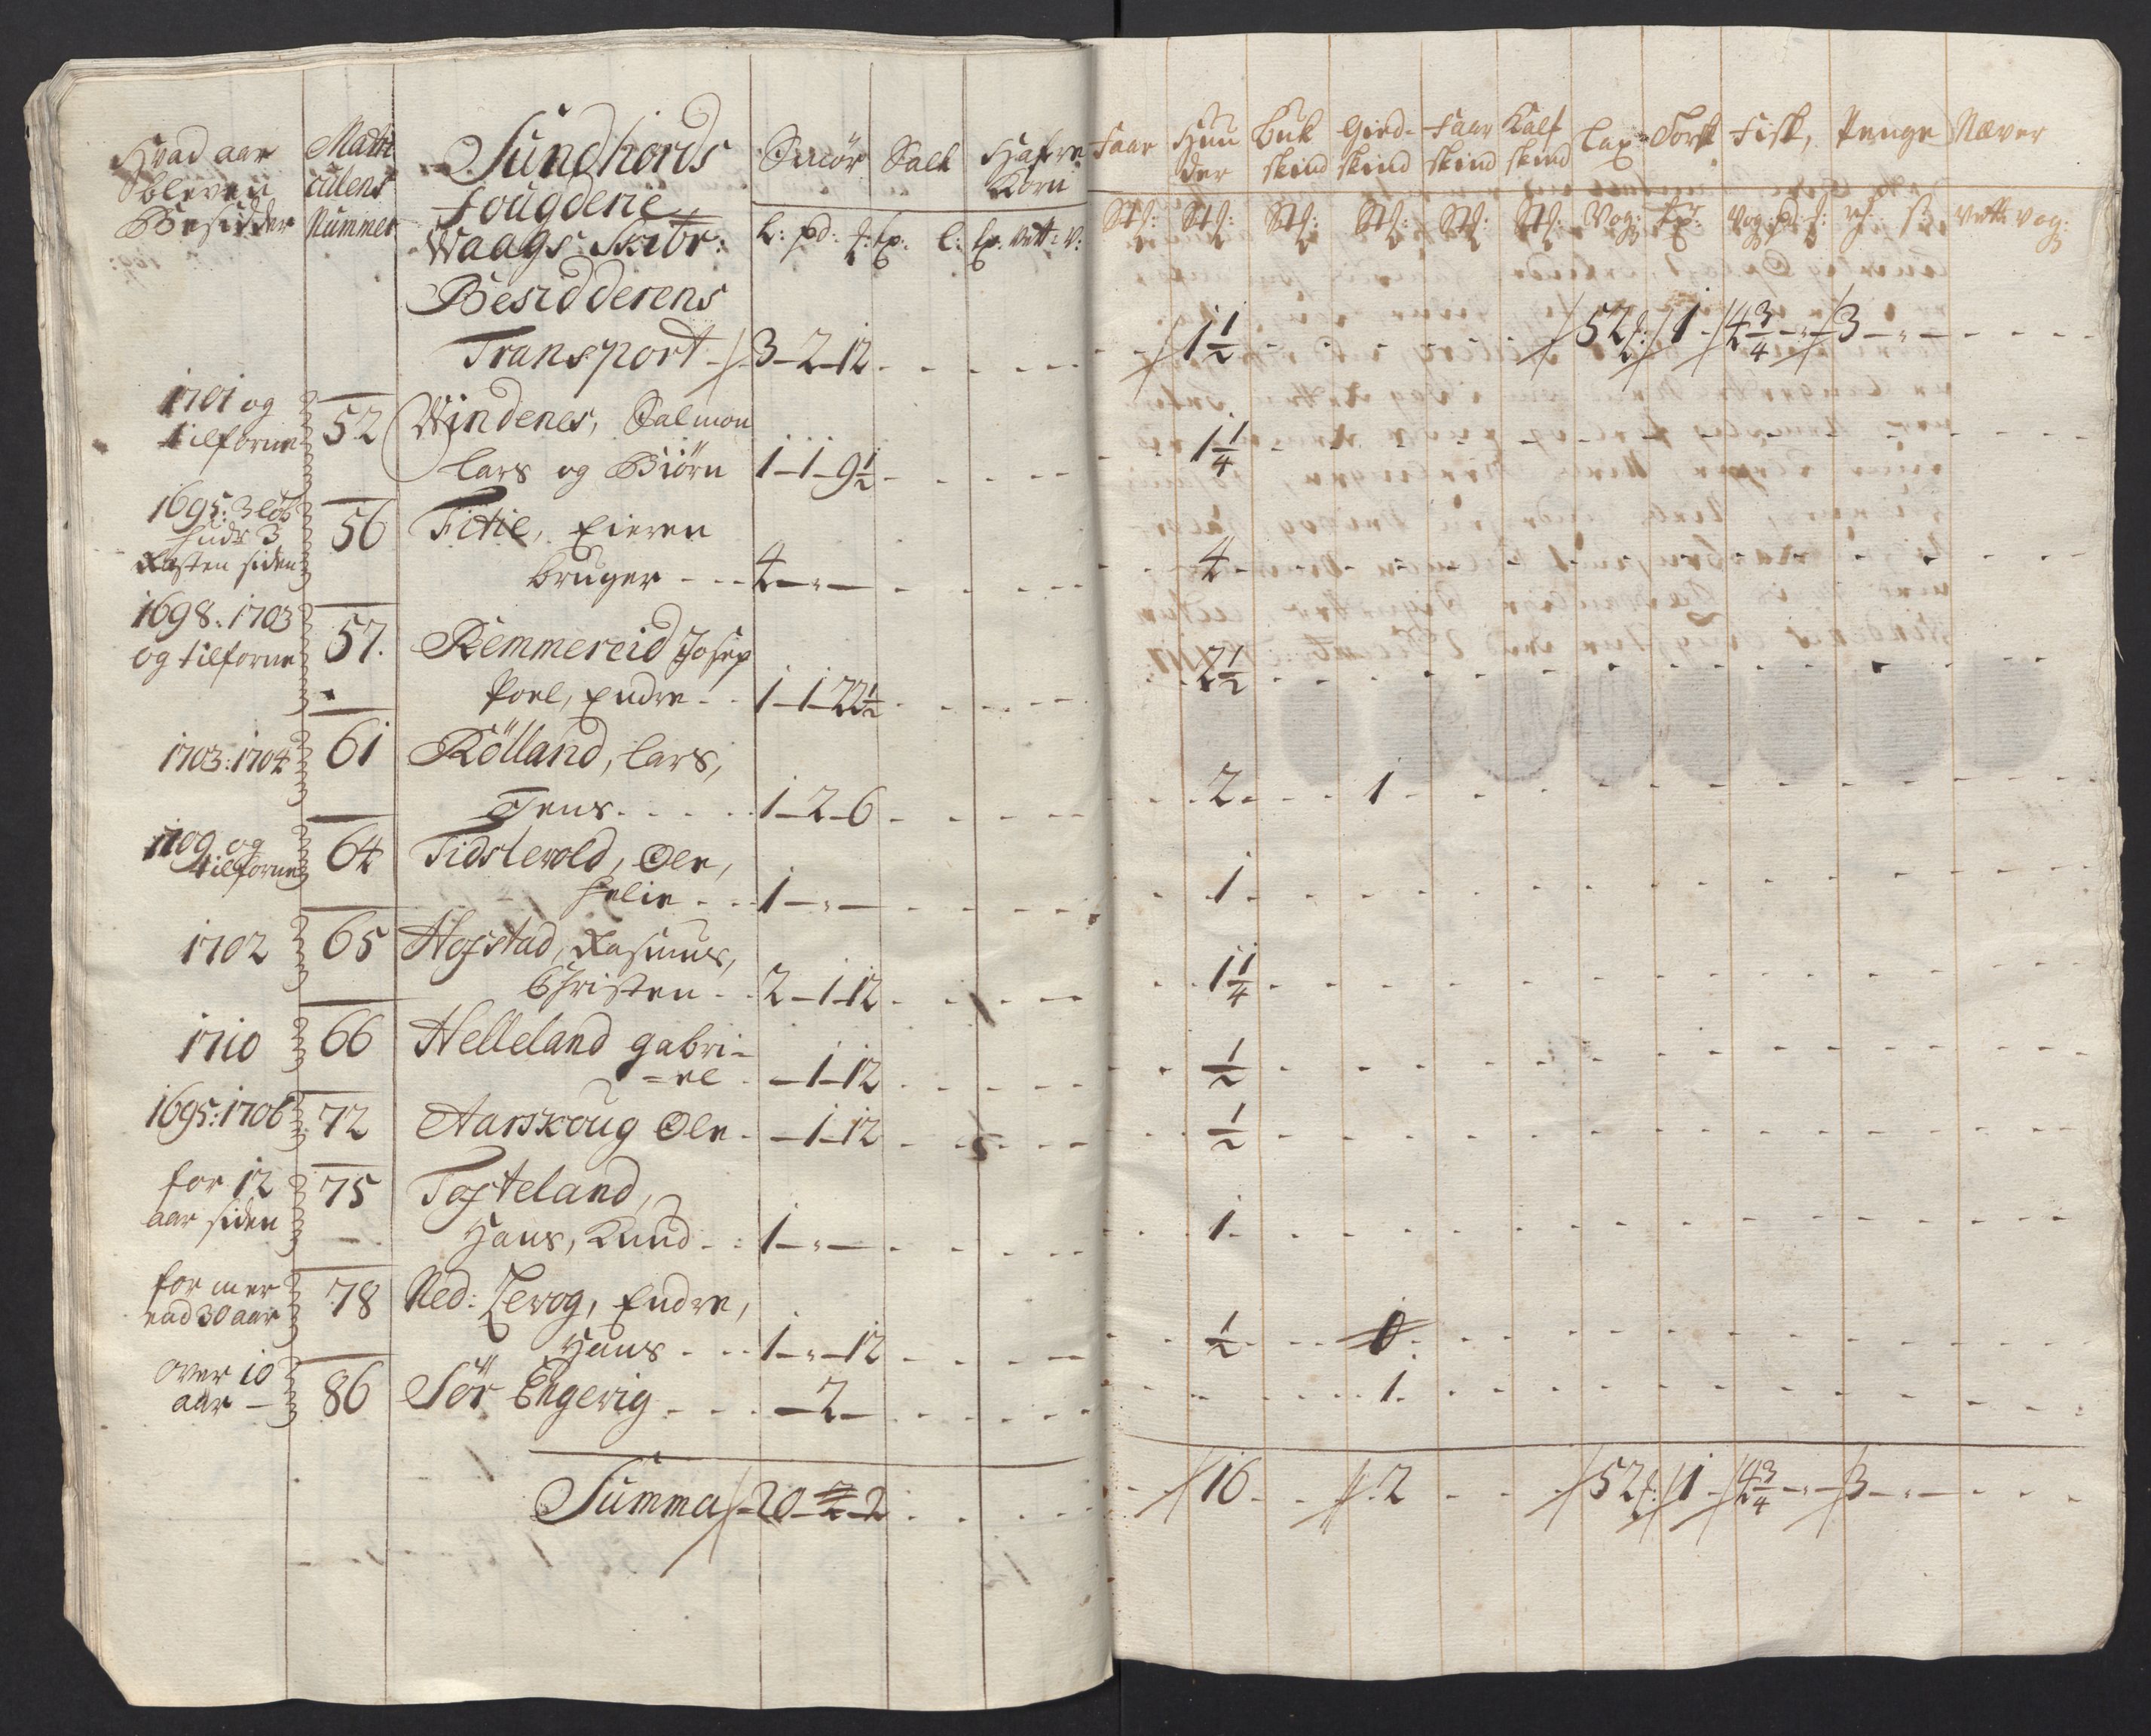 Hvad aar
bleven
Besidder
Matri
culens
Nummer
Sundhords
Fougderie
Waags Skibr:
Besidderens
Smör Salt Hafre
Korn
L: pd: Tp: Tp: Vett: V:
Faar Huu
der Buk
skind Gied-
skind Faar
skind Kalf
skind Lax Torsk Fisk, Penge Næver
Stk: Stk: Stk: Stk: Stk: Stk: Vog: Vog: Vett: Vog:
Transport 3-2-12 1 1/2 52 1 4 3/4 3
1701 og
tilforne 52 Windenes, Salmon
Lars og Biörn 1-1-9 1/2 1 1/4
1695: 3 löb
3
Resten siden 56 Fitie, Eieren
bruger 4 4
1698. 1703
og tilforne 57. Remmereid Josep
Poel, Endre 1-1-22 1/2 2 1/2
1703: 1704 61 Rölland, Lars,
Jens 1-2-6 2 1
1709 og
tilforne 64 Tidslevold, Ole,
Helie 1 1
1702 65 Hofstad, Rasmus,
Christen 2-1-12 1 1/4
1710 66 Helleland gabri-
=el -1-12 1/2
1695: 1706 72 Aarskoug Ole -1-12 1/2
for 12
aar siden 75 Tofteland,
Hans, Knud 1 1
for mer
end 30 aar 78 Ned: Zevog, Endre,
Hans 1-12 1/2
over 10
aar 86 Sör Engevig -2- 1
Summa 20-2-2 16 2 52 1 4 3/4 3